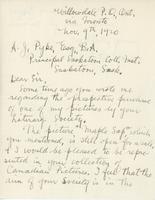 Willowdale P.O., Ont.
via Toronto
Nov. 9th, 1920
A. J. Pyke, Esq., B.A.
Principal Saskatoon Coll. Inst.
Saskatoon, Sask.
Dear Sir,
Some time ago you wrote me
regarding the prospective purchase
of one of my pictures by your
Literary Society.
The picture "Maple Sap" which
you mentioned, is still open for sale,
& I would be pleased to be repre-
sented in your collection of
Canadian Pictures. I feel that the
aim of your Society is in the